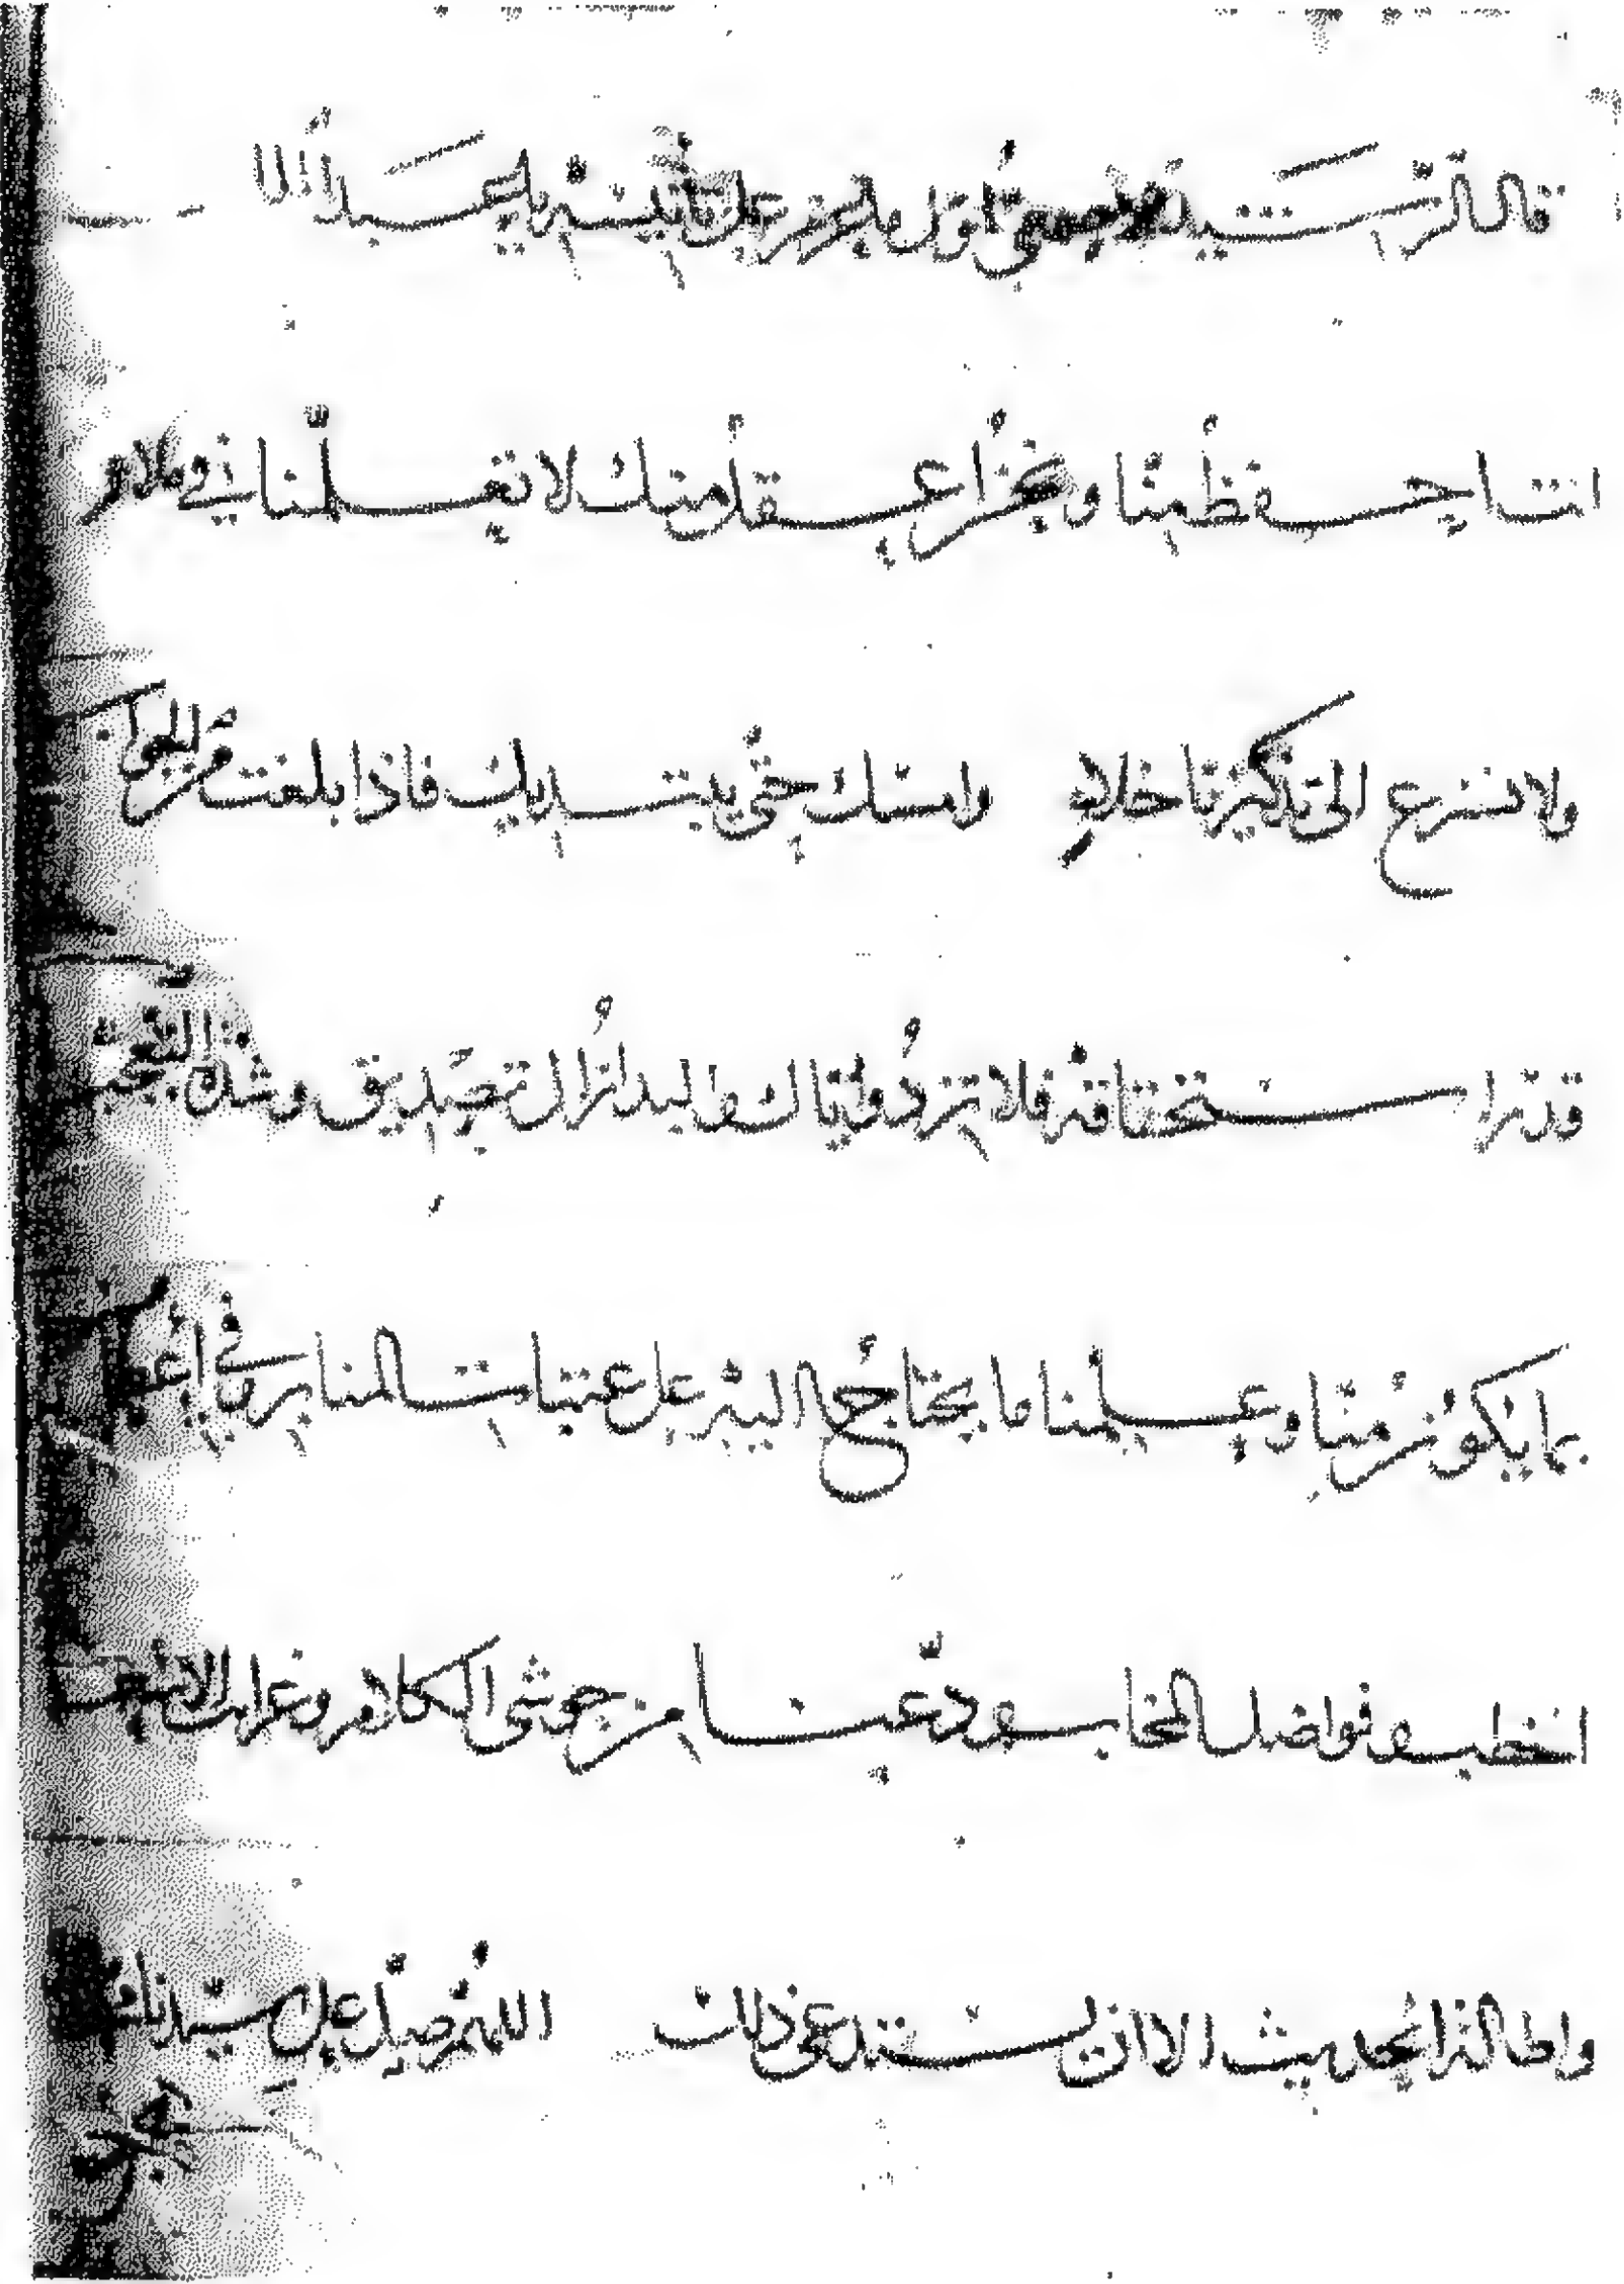 قال الرشيد للاصمعي أول ما عزم على تأنيسه يا عبد ال
انت احفظ منا ونحن أعقل منك لا تعلمنا في ملاء
ولا تسرع الى تذكيرنا خلاء وامسك حتى نبتديك فاذا بلغت من الجواب
قدر استحقاقه فلا تزد واياك والبدار الى تصديق وشدة التعجب
بما يكون منا وعلمنا ما نحتاج اليه على عتبات المنابر في
الخطب وفواصل المخاطب ودعنا من حوشي الكلام وغرائب الاشعار
واطالة الحديث الا ان يستدعى ذلك اللهم صل على سيدنا